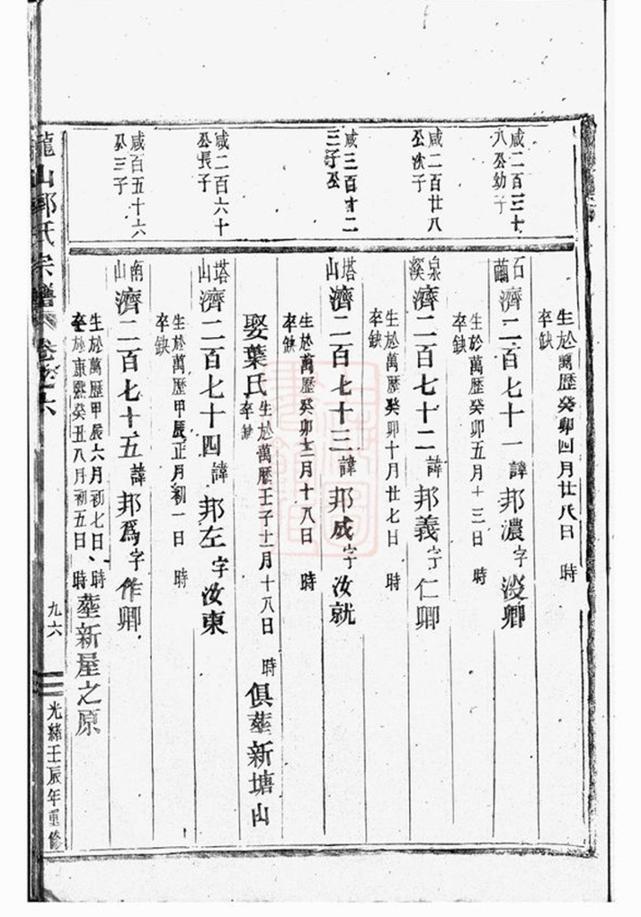 生於萬歷癸卯四月廿八日 時
卒缺
咸二百三十
八公幼子
石
濟二百七十一諱邦濃字浚卿
生於萬歷癸卯五月十三日 時
卒缺
咸二百廿八
公次子
泉
溪
濟二百七十二諱邦義字仁卿
生於萬歷癸卯十月廿七日
卒缺
咸三百廿二
三子公
塔
山
濟二百七十三諱邦成字汝就
生於萬歷癸卯十二月十八日 時
卒缺
娶葉氏生於萬歷壬子十二月十八日 時 俱塟新塘山
卒缺
咸二百六十
公長子
塔
山
濟二百七十四諱邦左字汝東
生於萬歷甲辰正月初一日 時
卒缺
咸百五十六
公三子
南
山
濟二百七十五諱邦為字作卿
生於萬歷甲辰六月初七日 時
卒於康熙癸丑八月初五日 時
塟新屋之原
龍山郭氏宗譜 卷之六 九六 光緒壬辰年重修